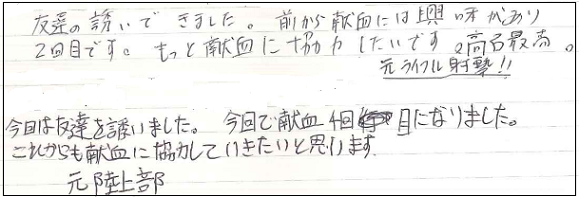 友達の誘いできました。前から献血には興味があり
2回目です。もっと献血に協力したいです。高石最高。
元ライフル射撃!!
今回は友達を誘いました。今回で献血4回目になりました。
これからも献血に協力していきたいと思います
元陸上部